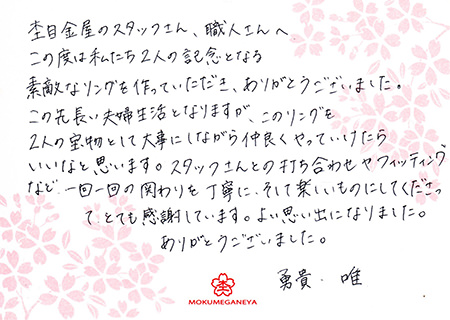 杢目金屋のスタッフさん、職人さんへ
この度は私たち2人の記念となる
素敵なリングを作っていただき、ありがとうございました。
この先長い夫婦生活となりますが、このリングを
2人の宝物として大事にしながら仲良くやっていけたら
いいなと思います。スタッフさんとの打ち合わせやフィッティング
など、一回一回の関わりを丁寧に、そして楽しいものにしてくださっ
てとても感謝しています。よい思い出になりました。
ありがとうございました。
勇貴・唯
MOKUMEGANEYA